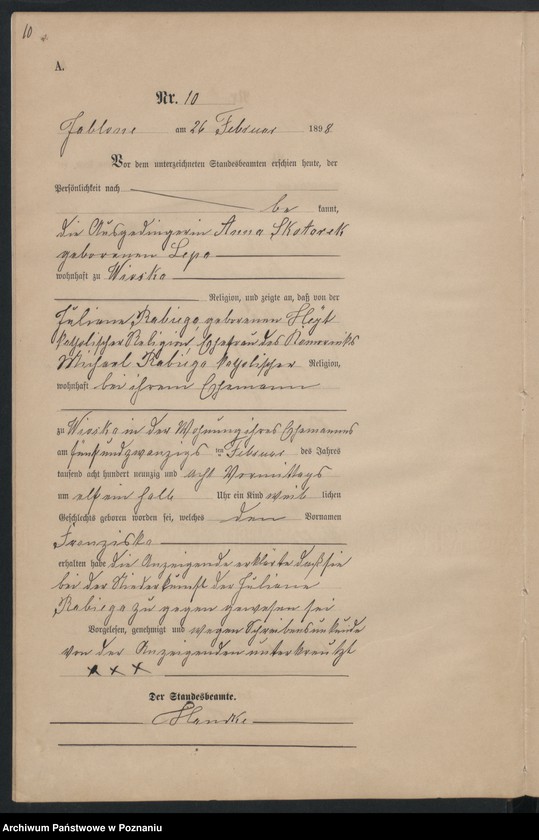 10
A.
Nr. 10
Jablone am 26 Februar 1898
Vor dem unterzeichneten Standesbeamten erschien heute, der
Persönlichkeit nach
be kannt,
die Ausgedingerin Anna Skotarek
geborenen Lepa
wohnhaft zu Wioska
Religion, und zeigte an, daß von der
Juliane Rabiega geborenen Heyt
katholischer Religion, Ehefrau des
Michael Rabiega katholischer Religion,
wohnhaft bei ihrem Ehemann
zu Wioska in der Wohnung ihres Ehemannes
am fünfundzwanzigs ten Februar des Jahres
tausend acht hundert neunzig und acht Vormittags
um elf ein halb Uhr ein Kind weib lichen
Geschlechts geboren worden sei, welches den Vornamen
Franziska
erhalten habe die Anzeigende erklärte daß sie
bei der Niederkunft der Juliane
Rabiega zu gegen gewesen sei
Vorgelesen, genehmigt und wegen Schreibensunkunde
von der Anzeigenden unterkreuzt
x x x
Der Standesbeamte.
Archiwum Państwowe w Poznaniu